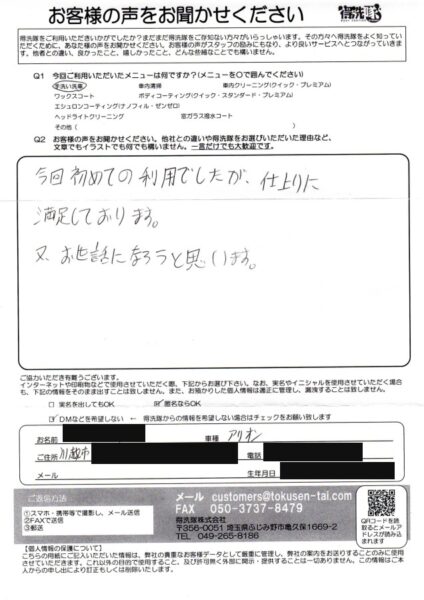 お客様の声をお聞かせください
得洗隊
得洗隊をご利用いただきいかがでしたか？まだまだ得洗隊をご存知ない方々がいらっしゃいます。その方々へ得洗隊をよく知っていただくために、あなた様の声をお聞かせください。お客様の声がスタッフの励みにもなり、より良いサービスへとつながっていきます。他社との違い、良かったこと、嬉しかったこと、どんな些細なことでも構いません。
Q1 今回ご利用いただいたメニューは何ですか？(メニューを○で囲んでください)
手洗い洗車 車内清掃 車内クリーニング(クイック・プレミアム)
ワックスコート ボディコーティング(クイック・スタンダード・プレミアム)
エシュロンコーティング(ナノフィル・ゼンゼロ)
ヘッドライトクリーニング 窓ガラス撥水コート
その他( )
Q2 お客様の声をお聞かせください。他社との違いや得洗隊をお選びいただいた理由など、
文章でもイラストでも何でも構いません。一言だけでも大歓迎です。
今回初めての利用でしたが、仕上りに
満足しております。
又、お世話になろうと思います。
ご協力いただき有難うございます。
インターネットや印刷物などで使用させていただく際、下記からお選び下さい。なお、実名やイニシャルを使用させていただく場合も、下記の情報をそのまま出すことは致しません。また、お預かりした個人情報は適正に管理し、漏洩することは致しません。
□ 実名を出してもOK ☑ 匿名ならOK
☑ DMなどを希望しない ← 得洗隊からの情報を希望しない場合はチェックをお願い致します
お名前 車種 アリオン
ご住所 川越市 電話
メール 生年月日
ご返信方法
①スマホ・携帯等で撮影し、メール送信
②FAXで送信
③郵送
メール customers@tokusen-tai.com
FAX 050-3737-8479
得洗隊株式会社
〒356-0051 埼玉県ふじみ野市亀久保1669-2
TEL 049-265-8186
QRコードを読取るとメールアドレスが読み込まれます
【個人情報の保護について】
こちらの用紙にご記入いただいた情報は、弊社の貴重なお客様データとして厳重に管理し、弊社の案内をお送りすることのみに使用させていただきます。これ以外の目的で使用すること、及び許可無く外部に開示・提供することは一切ありません。この情報はご本人からの申し出により訂正もしくは削除いたします。